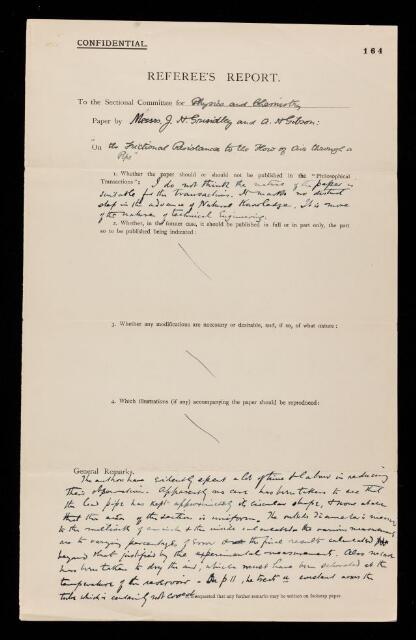 CONFIDENTIAL.
164
REFEREE'S REPORT.
To the Sectional Committee for Physics and Chemistry
Paper by Messrs. J. H. Grindley and A. H. Gibson:
"On the Frictional Resistance to the Flow of Air through a
Pipe"
1. Whether the paper should or should not be published in the "Philosophical
Transactions": I do not think the nature of the paper is
suitable for the Transactions. It marks no distinct
step in the advance of Natural Knowledge. It is more
of the nature of technical Engineering.
2. Whether, in the former case, it should be published in full or in part only, the part
so to be published being indicated:
3. Whether any modifications are necessary or desirable, and, if so, of what nature:
4. Which illustrations (if any) accompanying the paper should be reproduced:
General Remarks.
The authors have evidently spent a lot of time & labour in reducing
their observations. Apparently no care has been taken to see that
the lead pipe has kept approximately its circular shape, & more
that the area of the section is uniform. The outside diameter is
to the of an inch & the the various
are to varying percentages of error the final results calculated
beyond that justified by the experimental measurements. Also no care
has been taken to dry the air, which must have been saturated at the
temperature of the reservoir - On p 11, he treats u constant across the
tube which is certainly not
requested that any further remarks may be written on foolscap paper.